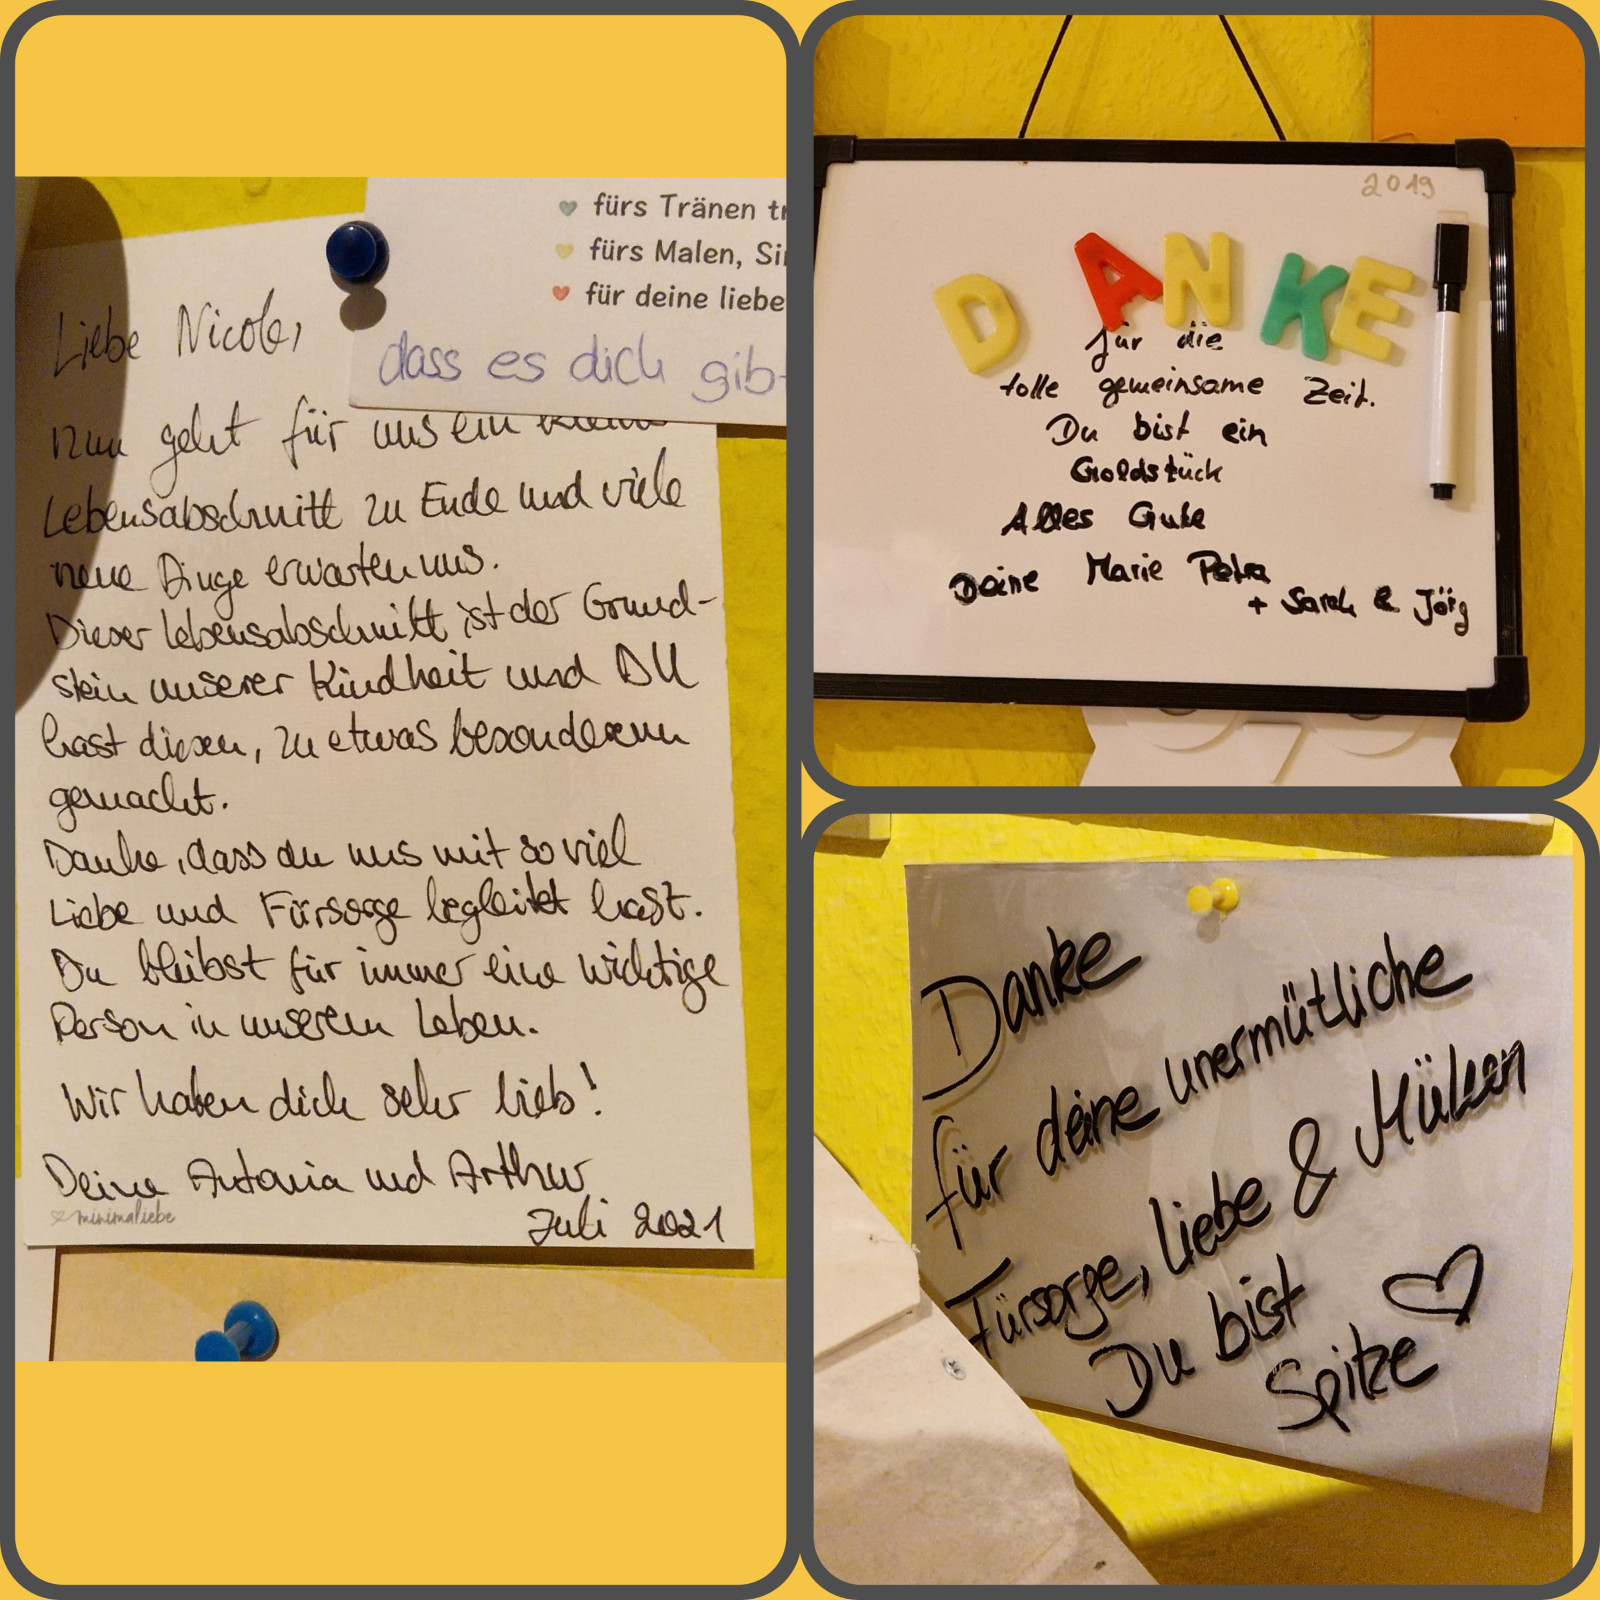 fürs Tränen
fürs Malen,
für deine liebe
dass es dich
Liebe Nicole,
Nun geht für uns ein
Lebensabschnitt zu Ende und viele
neue Dinge erwarten uns.
Dieser Lebensabschnitt ist der Grund-
stein unserer Kindheit und DU
hast diesen, zu etwas besonderem
gemacht.
Danke, dass du uns mit so viel
Liebe und Fürsorge begleitet hast.
Du bleibst für immer eine wichtige
Person in unserem Leben.
Wir haben dich sehr lieb!
Deine Antonia und Arthur
minimaliebe
Juli 2021
2019
DANKE
für die
tolle gemeinsame Zeit.
Du bist ein
Goldstück
Alles Gute
Deine Marie Petra
+ Sarah & Jörg
Danke
für deine unermütliche
Fürsorge, Liebe & Mühen
Du bist
Spitze